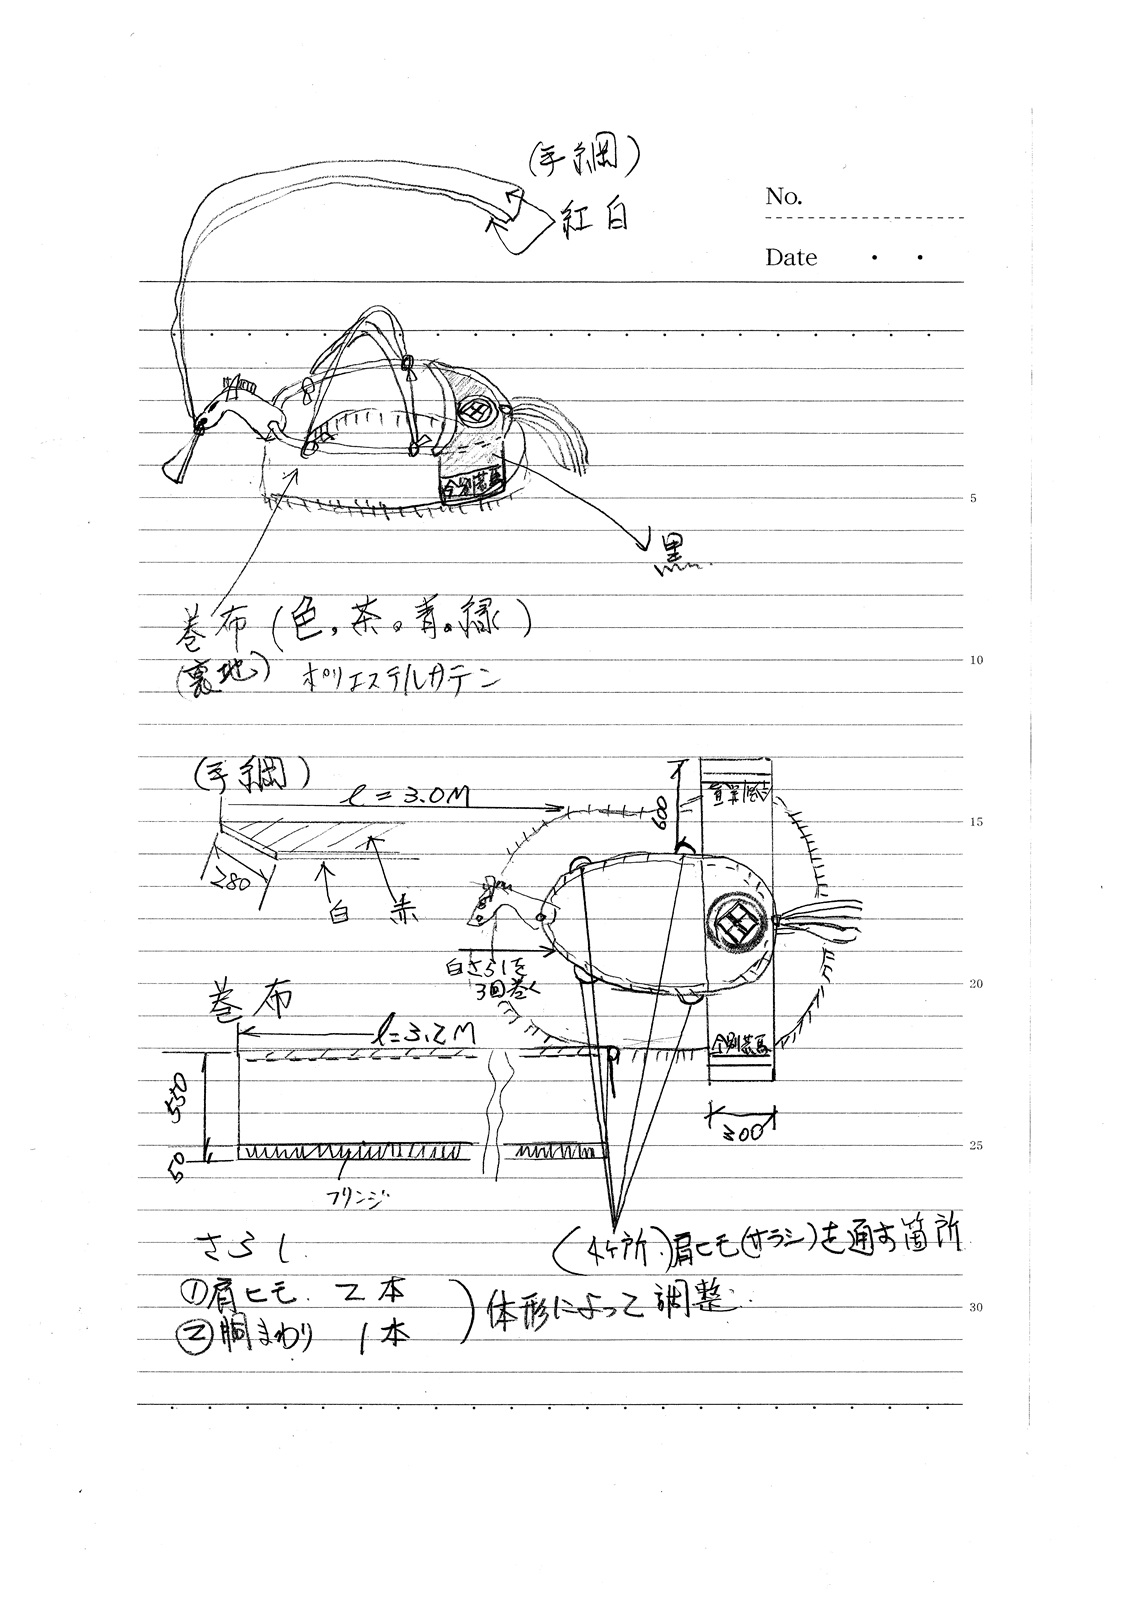 (手綱)
No.
紅白
Date
今別荒馬
5
黒
巻布(色,茶。青。緑)
10
(裏地) ポリエステルカテン
(手綱)
l=3.0M
600
15
280
白 赤
白さらしを
3回巻く
20
巻布
l=3.2M
今別荒馬
550
300
25
50
フリンジ
さらし
(4ヶ所)肩ヒモ(サラシ)を通す箇所
①肩ヒモ. 2本
体形によって調整.
30
②胴まわり 1本